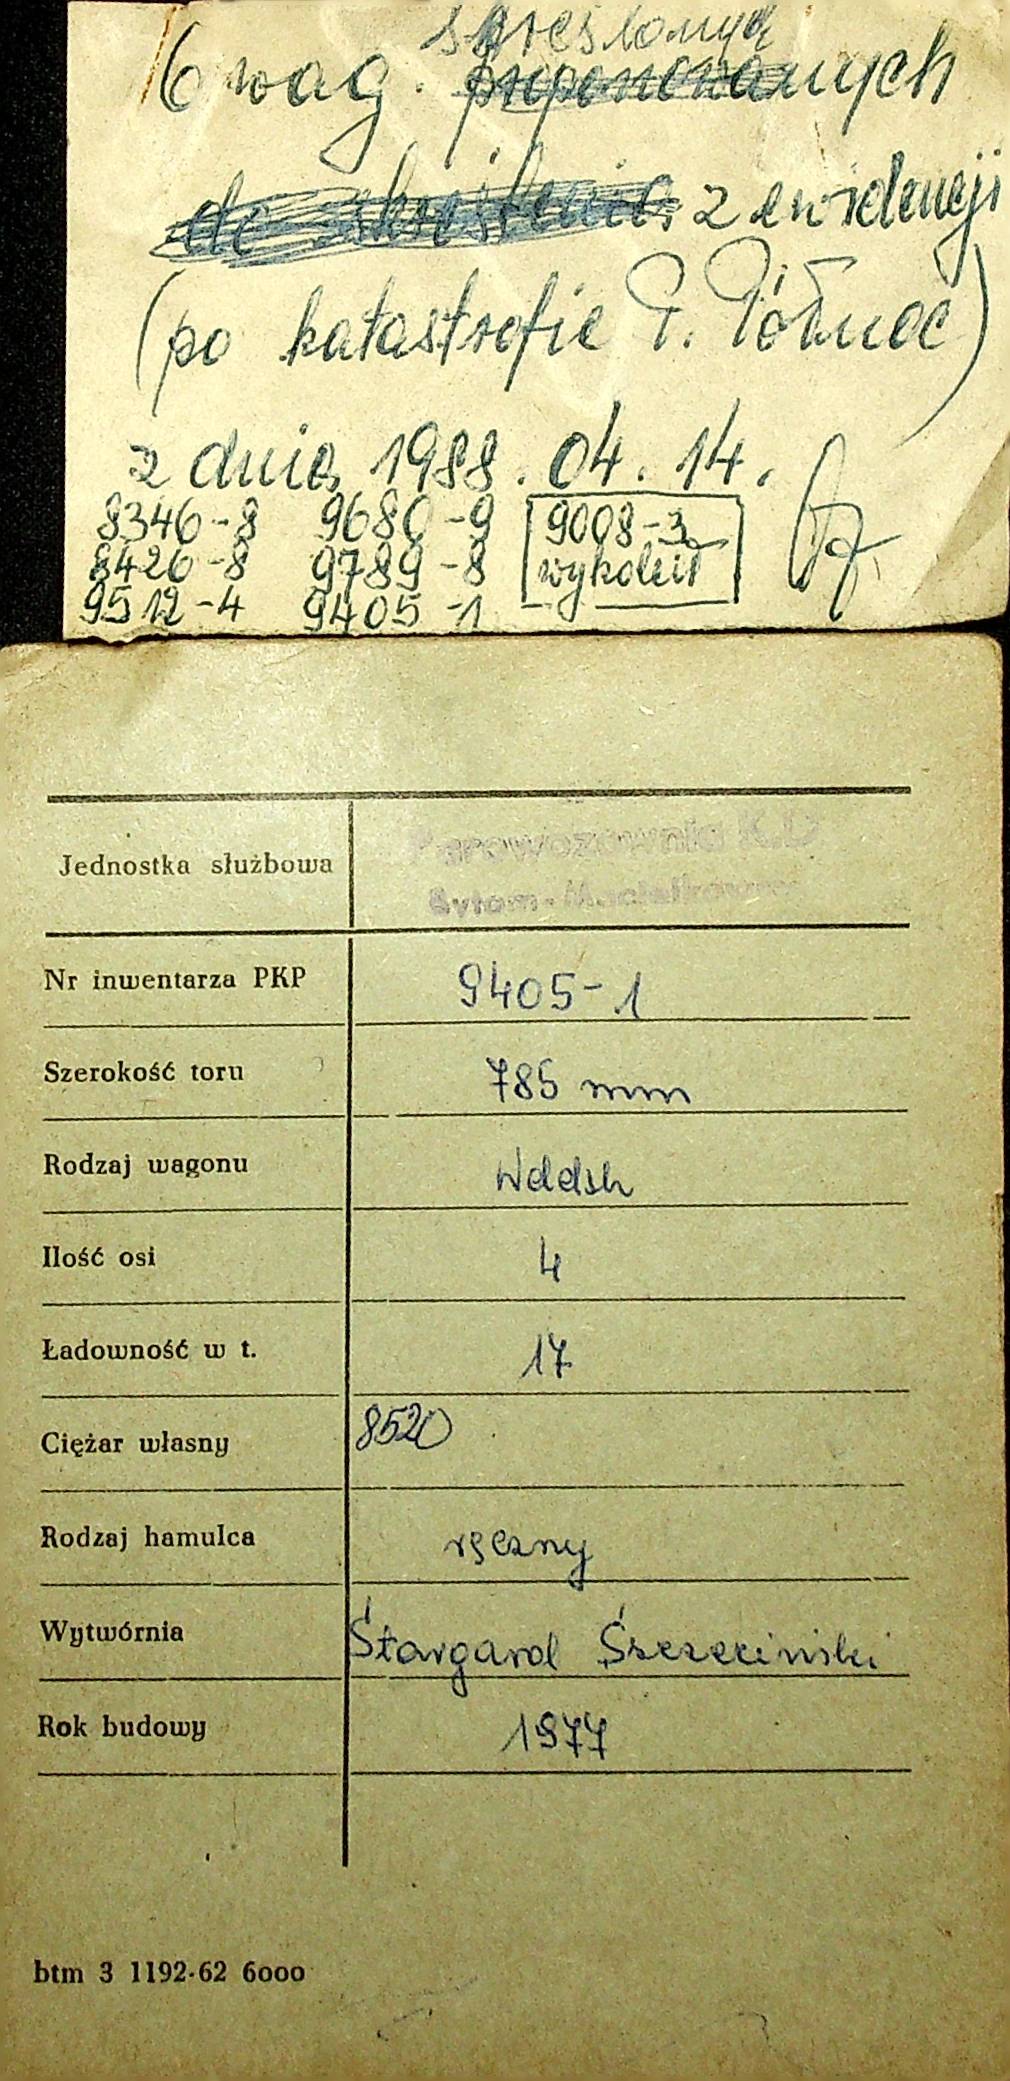 skreślonych
6 wag. proponowanych
do skreślenia z ewidencji
(po katastrofie P. Północ)
z dnia 1988.04.14.
8346-8 9680-9 9008-3
8426-8 9789-8 wykoleił
9512-4 9405-1
Parowozownia K.D
Bytom-
Jednostka służbowa
Nr inwentarza PKP 9405-1
Szerokość toru 785 mm
Rodzaj wagonu Wddsh
Ilość osi 4
Ładowność w t. 17
Ciężar własny 8520
Rodzaj hamulca ręczny
Wytwórnia Stargard Szczeciński
Rok budowy 1977
btm 3 1192-62 6000